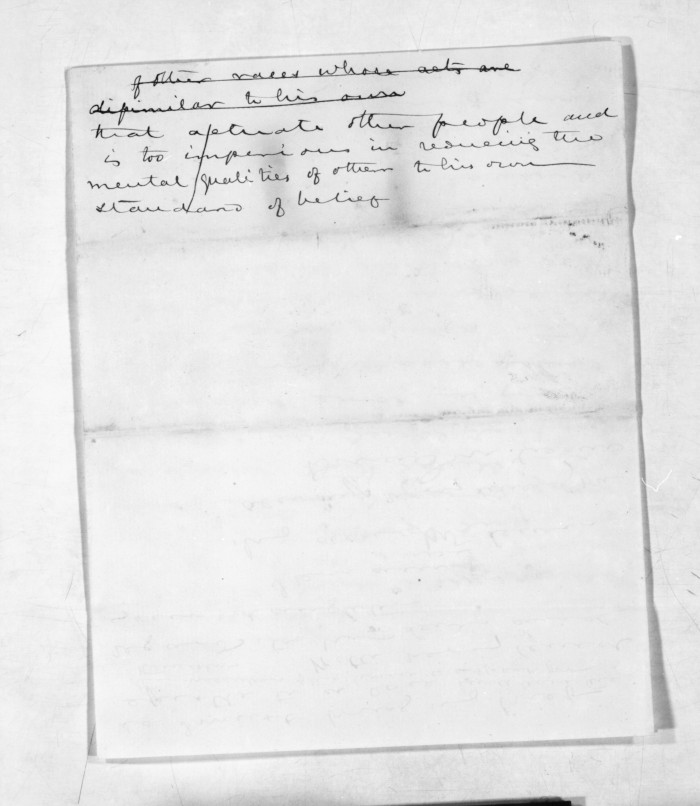 of other races whose acts are
dissimilar to his own
that actuate other people and
is too imperious in reducing the
mental qualities of others to his own
standard of belief